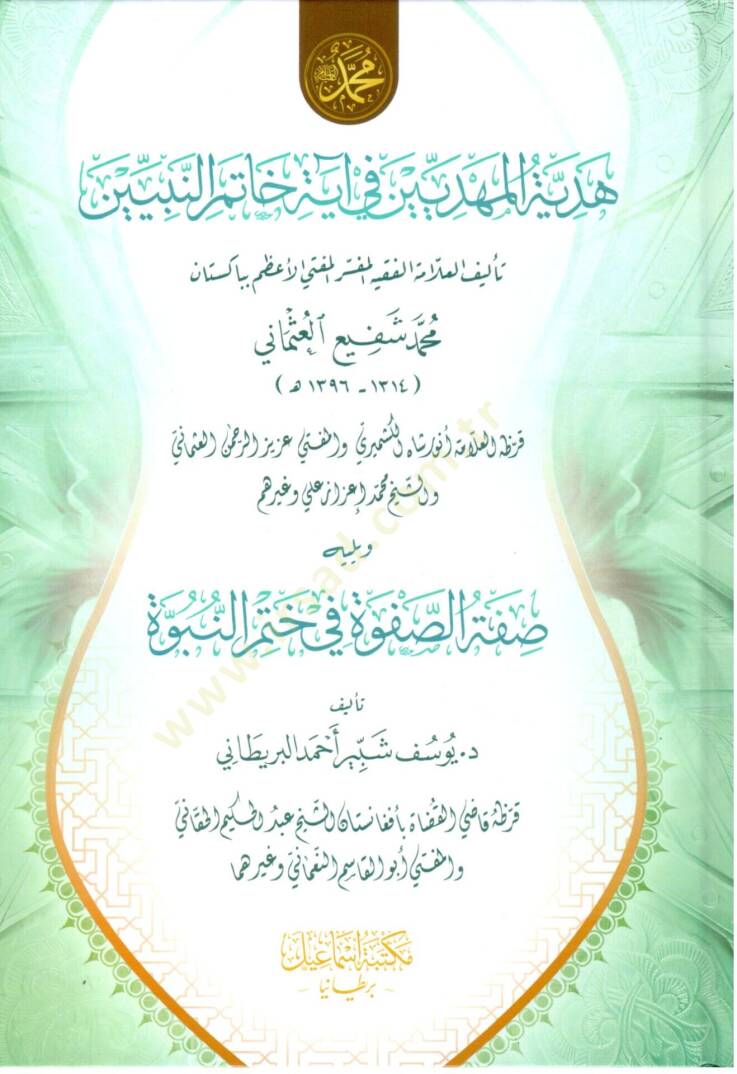 محمد
هَدِيَّةُ المَهْدِيِّينَ فِي آيَةِ خَاتَمِ النَّبِيِّينَ
تأليف العلّامة الفقيه المفسّر المفتي الأعظم بباكستان
مُحمَّد شَفِيع العُثمَاني
(١٣١٤ - ١٣٩٦ هـ)
قرّظه العلّامة أنور شاه الكشميري والمفتي عزيز الرحمن العثماني
والشيخ محمد إعزاز علي وغيرهم
ويليه
صِفَةُ الصَّفْوَةِ فِي خَتْمِ النُّبُوَّةِ
تأليف
د. يُوسُف شَبِّير أَحْمَد البريطَاني
قرّظه قاضي القضاة بأفغانستان الشيخ عبد الحكيم الحقاني
والمفتي أبو القاسم النعماني وغيرهما
مكتبة إسماعيل
- برطانيا -